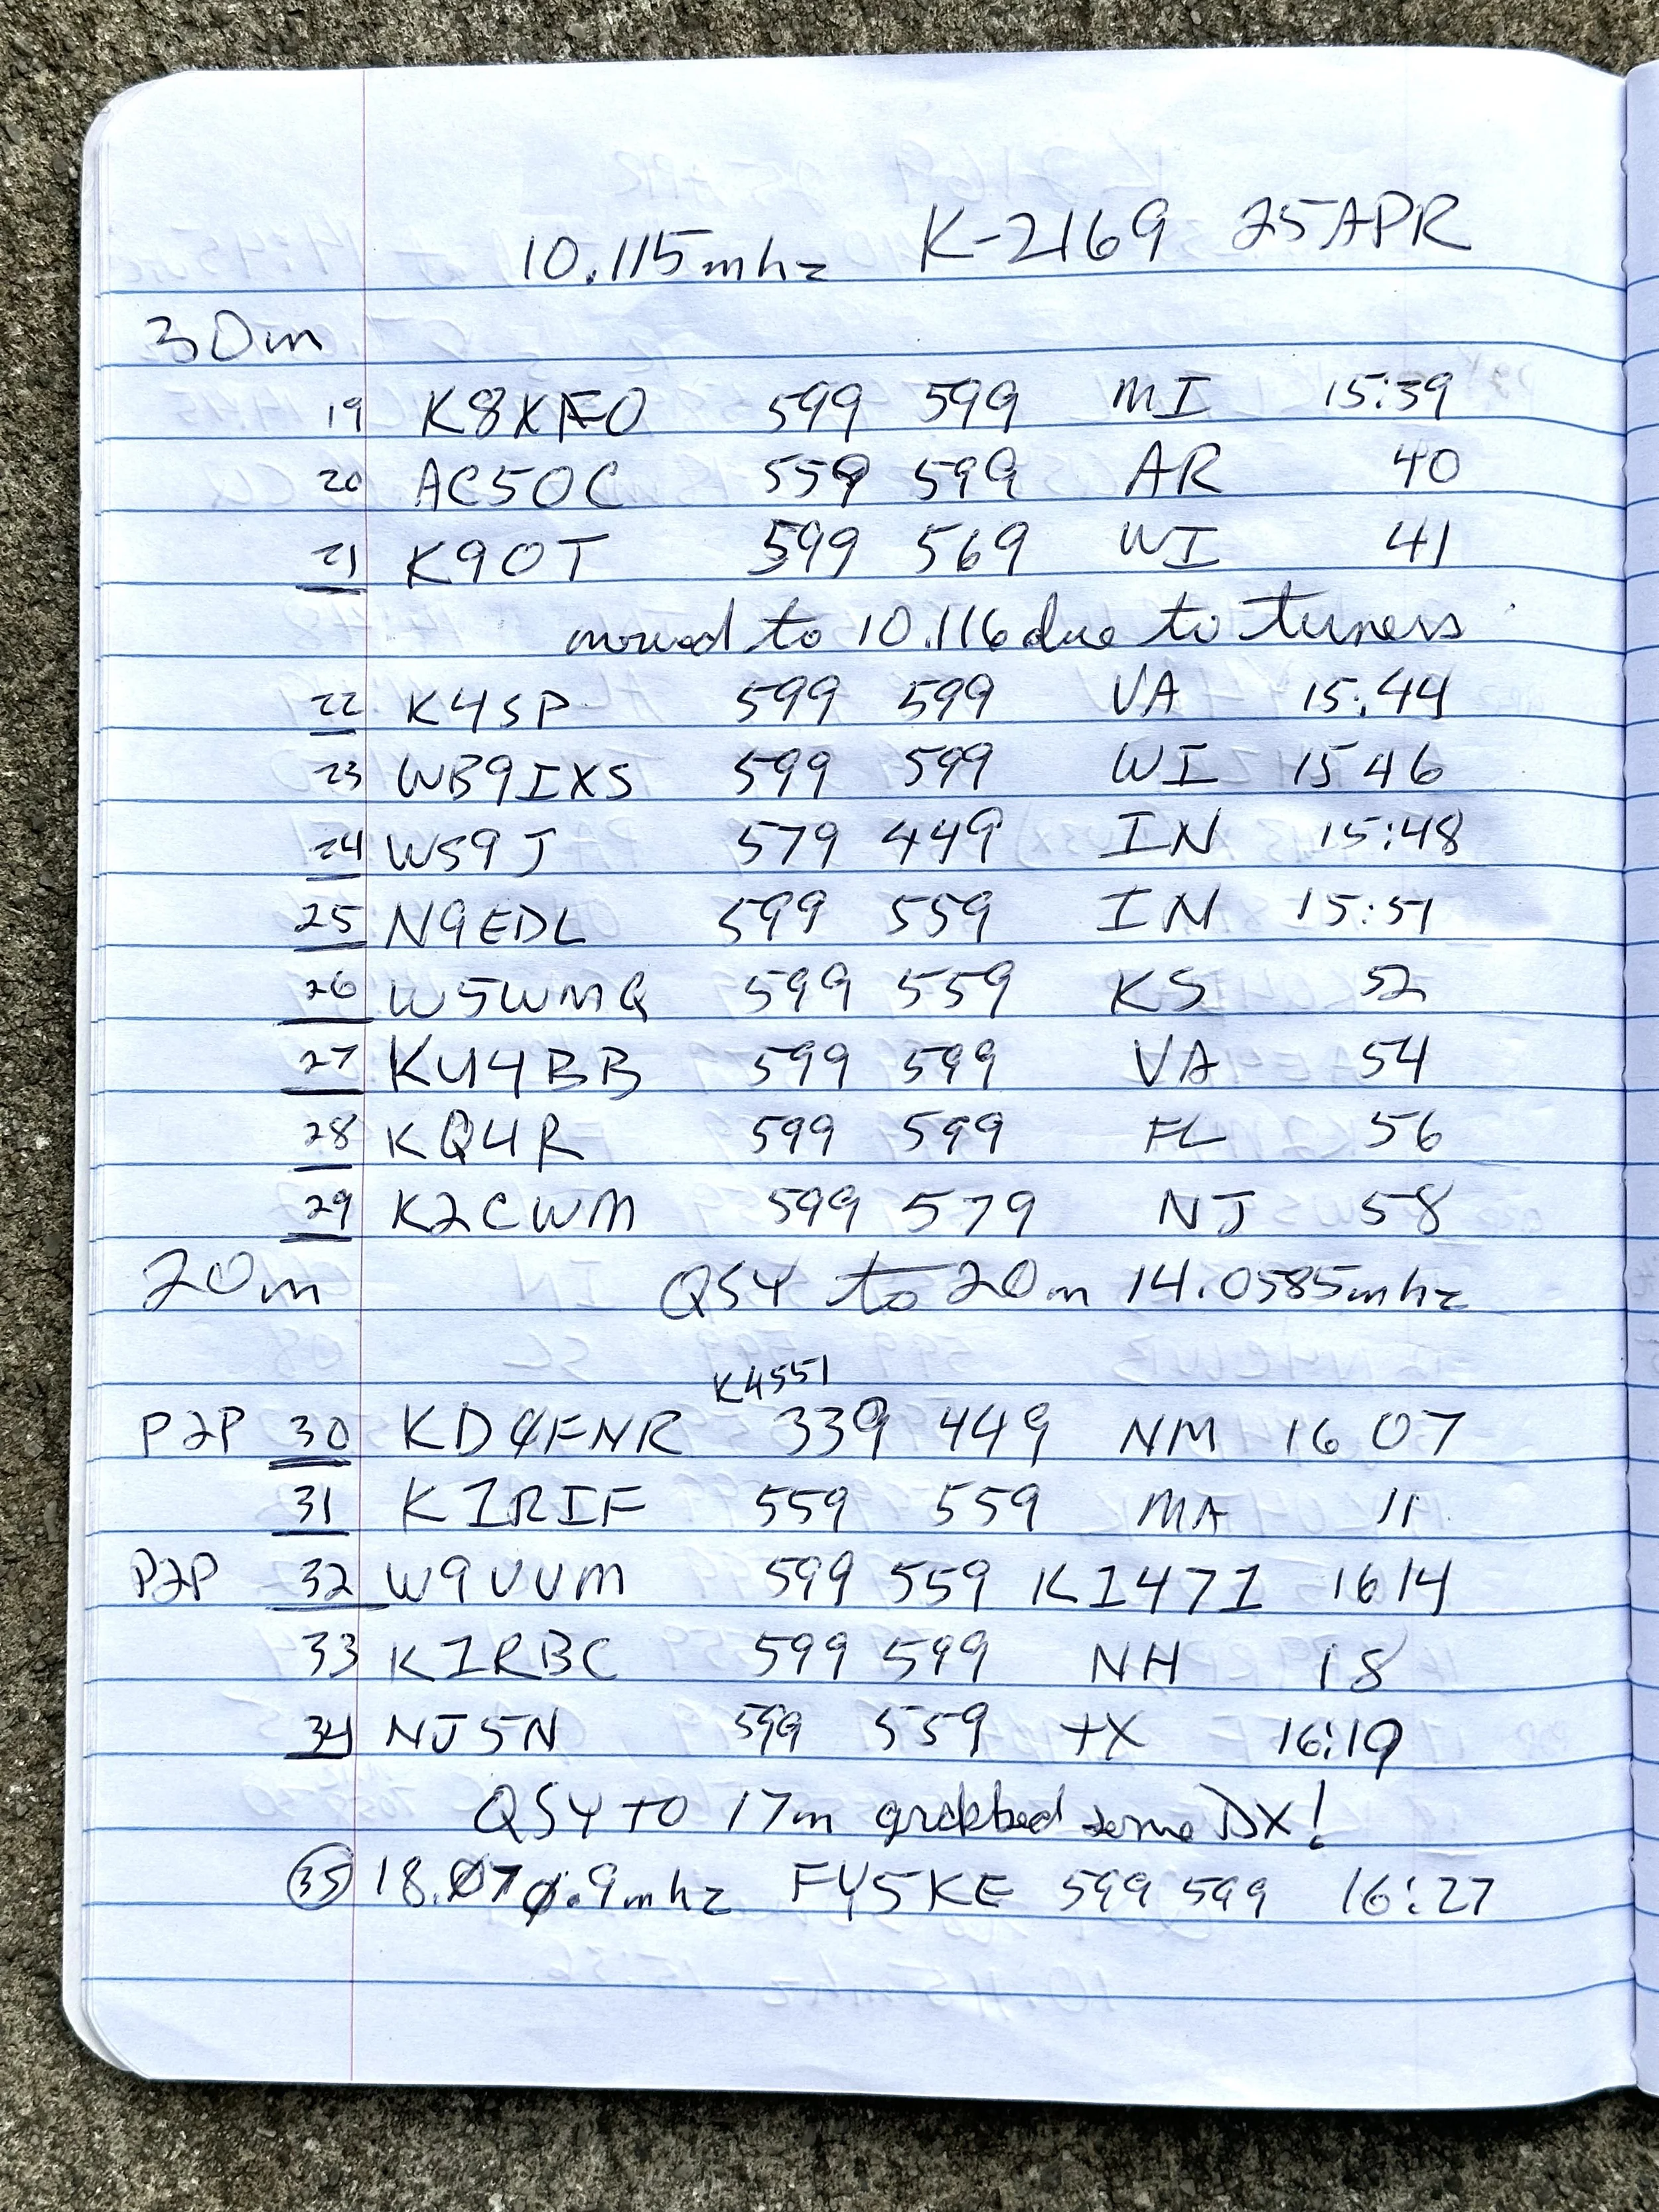 10.115mhz K-2169 25APR
30m
19 K8XFO 599 599 MI 15:39
20 AC5OC 559 599 AR 40
21 K9OT 599 569 WI 41
moved to 10.116 due to tuners
22 K4SP 599 599 VA 15:44
23 WB9IXS 599 599 WI 15 46
24 WS9J 579 449 IN 15:48
25 N9EDL 599 559 IN 15:51
26 W5WMQ 599 559 KS 52
27 KU4BB 599 599 VA 54
28 KQ4R 599 599 FL 56
29 K2CWM 599 579 NJ 58
20m QSY to 20m 14.0585mhz
K4551
P2P 30 339 449 NM 16 07
31 K1RIF 559 559 MA 11
P2P 32 W9UUM 599 559 K1471 1614
33 K1RBC 599 599 NH 18
34 NJ5N 599 559 TX 16:19
QSY TO 17m grabbed some DX!
35 FY5KE 599 599 16:27